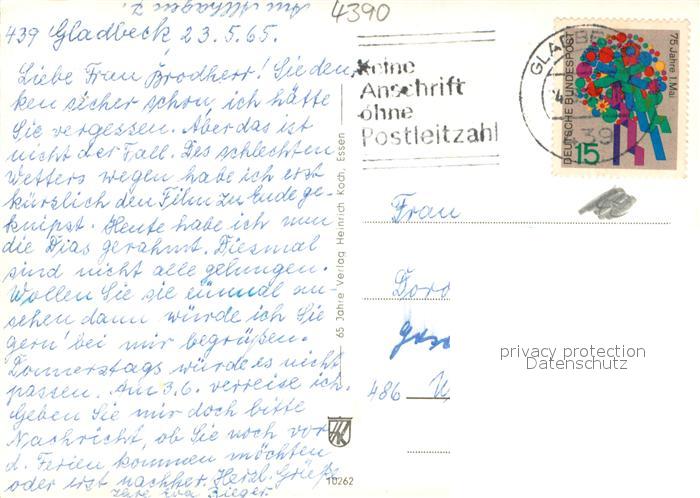 4390
439 Gladbeck 23.5.65.
Liebe Frau Brodherr! Sie den,
ken sicher schon, ich hätte
Sie vergessen. Aber das ist
nicht der Fall. Des schlechten
Wetters wegen habe ich erst
kürzlich den Film zu Ende ge-
knipst. Heute habe ich nun
die Dias gerahmt. Diesmal
sind nicht alle gelungen.
Wollen Sie sie einmal an-
sehen dann würde ich Sie
gern bei mir begrüßen.
Donnerstags würde es nicht
passen. Am 3.6. verreise ich.
Geben Sie mir doch bitte
Nachricht, ob Sie noch vor
d. Ferien kommen möchten
oder erst nachher. Herzl. Grüße
Ihre Eva Zieger
65 Jahre Verlag Heinrich Koch, Essen
HK
10262
Keine
Anschrift
ohne
Postleitzahl
GLADBE
439
75 Jahre 1. Mai
DEUTSCHE BUNDESPOST
15
Frau
Doro
486
privacy protection
Datenschutz